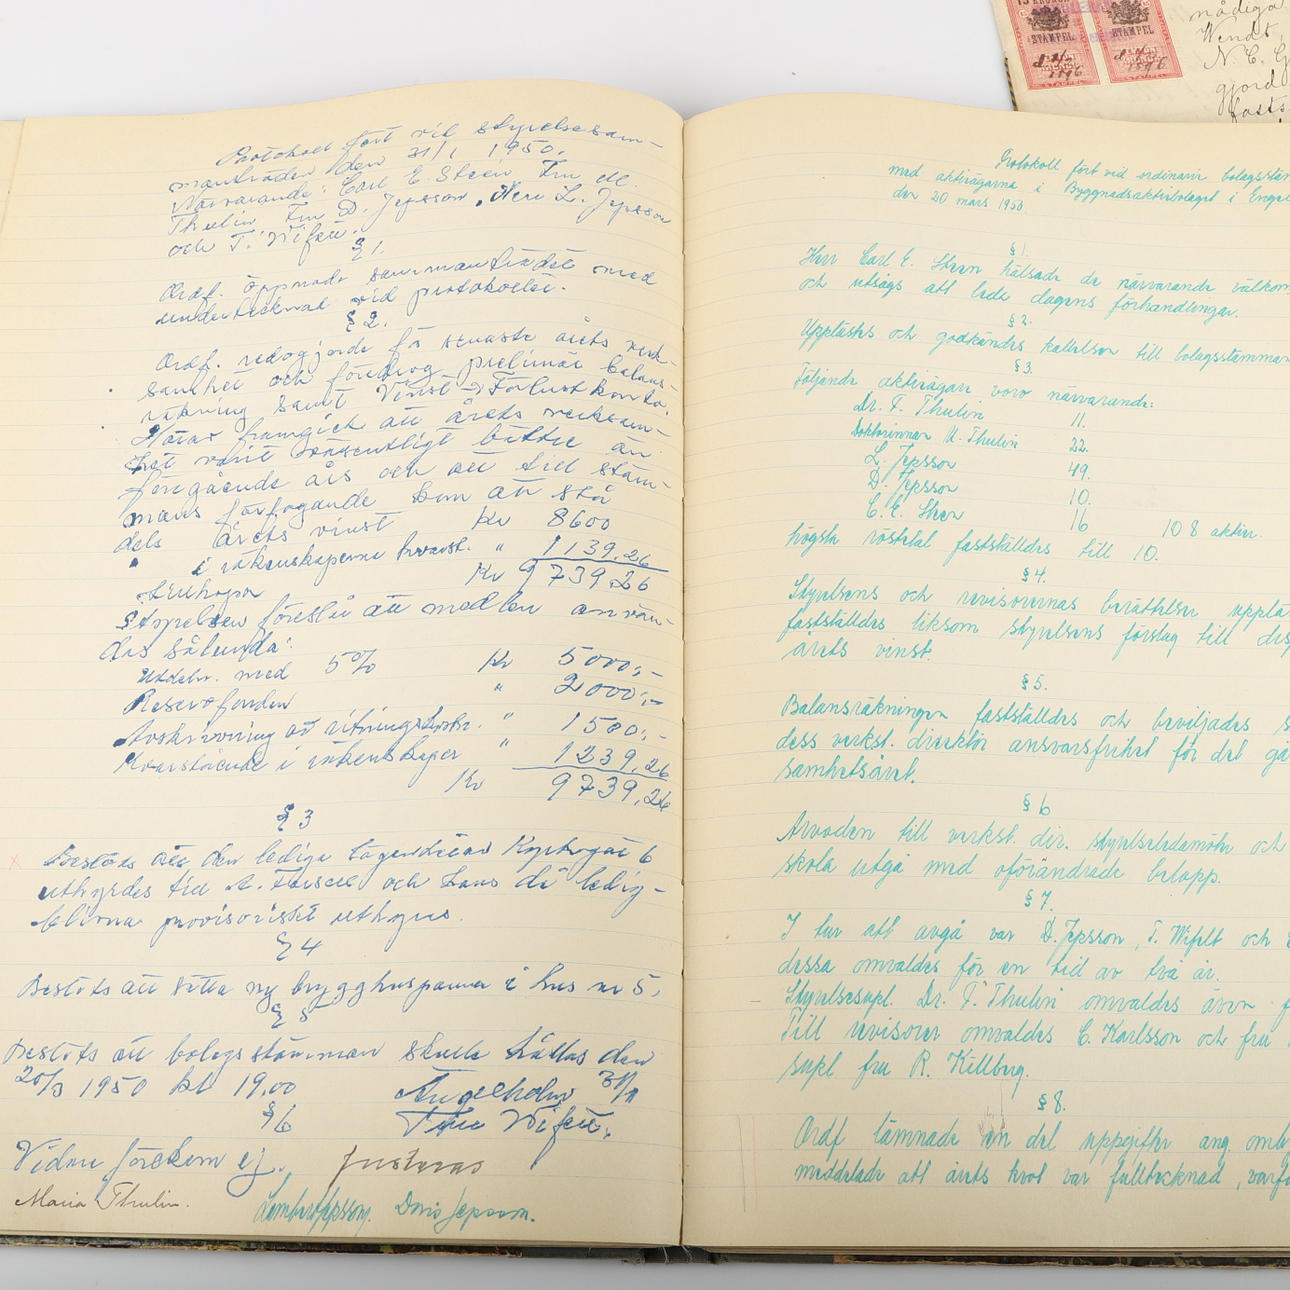 Protokoll fört vid styrelsesam-
manträden den 31/1 1950.
Närvarande: Carl E. Steen, Fru M.
Thulin Fru D. Jepsson, Herr L. Jepsson
och T. Wifelt.
§ 1.
Ordf. öppnade sammanträdet med
undertecknad vid protokollet.
§ 2.
Ordf. redogjorde för senaste årets verk-
samhet och föredrog preliminär balans-
räkning samt Vinst- Förlustkonto.
Härav framgick att årets verksam-
het varit väsentligt bättre än
föregående års och att till stäm-
mans förfogande kom att stå
dels årets vinst Kr 8600
" i räkenskaperna kvarst. " 1139,26
tillhopa Kr 9739,26
Styrelsen föreslår att medlen använ-
das sålunda:
Utdeln. med 5% Kr 5000,-
Reservfonden " 2000,-
Avskrivning av ritningskostn. " 1500,-
Kvarstående i räkenskaper " 1239,26
Kr 9739,26
§ 3
Beslöts att den lediga lägenheten 6
uthyrdes till A. och hans då ledig-
blivna provisoriskt uthyres.
§ 4
Beslöts att sätta ny brygghuspanna i hus nr 5.
§ 5
Beslöts att bolagsstämman skulle hållas den
20/3 1950 kl 19,00 Ängelholm 31/1
§ 6 Ture Wifelt.
Vidare förekom ej. Justeras
Maria Thulin. Lambert Jepsson. Doris Jepsson.
Protokoll fört vid ordinarie bolagsstäm
med aktieägarna i Byggnadsaktiebolaget i Engel
den 20 mars 1950
§ 1.
Herr Carl E. Steen hälsade de närvarande välkom
och utsågs att leda dagens förhandlingar.
§ 2.
Upplästes och godkändes kallelsen till bolagsstämman
§ 3.
Följande aktieägare voro närvarande:
Dr. F. Thulin 11.
Doktorinnan M. Thulin 22.
L. Jepsson 49.
D. Jepsson 10.
C. E. Steen 16 108 aktier.
högsta röstetal fastställdes till 10.
§ 4.
Styrelsens och revisorernas berättelser upplä
fastställdes liksom styrelsens förslag till dis
årets vinst.
§ 5.
Balansräkningen fastställdes och beviljades s
dess verkst. direktör ansvarsfrihet för det gå
samhetsåret.
§ 6
Arvoden till verkst. dir. styrelseledamöter och
skola utgå med oförändrade belopp.
§ 7.
I tur att avgå var D. Jepsson, T. Wifelt och
dessa omvaldes för en tid av två år.
Styrelsesupl. Dr. F. Thulin omvaldes även f
Till revisorer omvaldes C. Karlsson och fru
supl fru R. Killberg.
§ 8.
Ordf lämnade en del uppgifter ang. omb
meddelade att årets kvot var fulltecknad, varf
STÄMPEL
STÄMPEL
1896
1896
nådiga
Wendt,
N. C. G
gjord
fasts